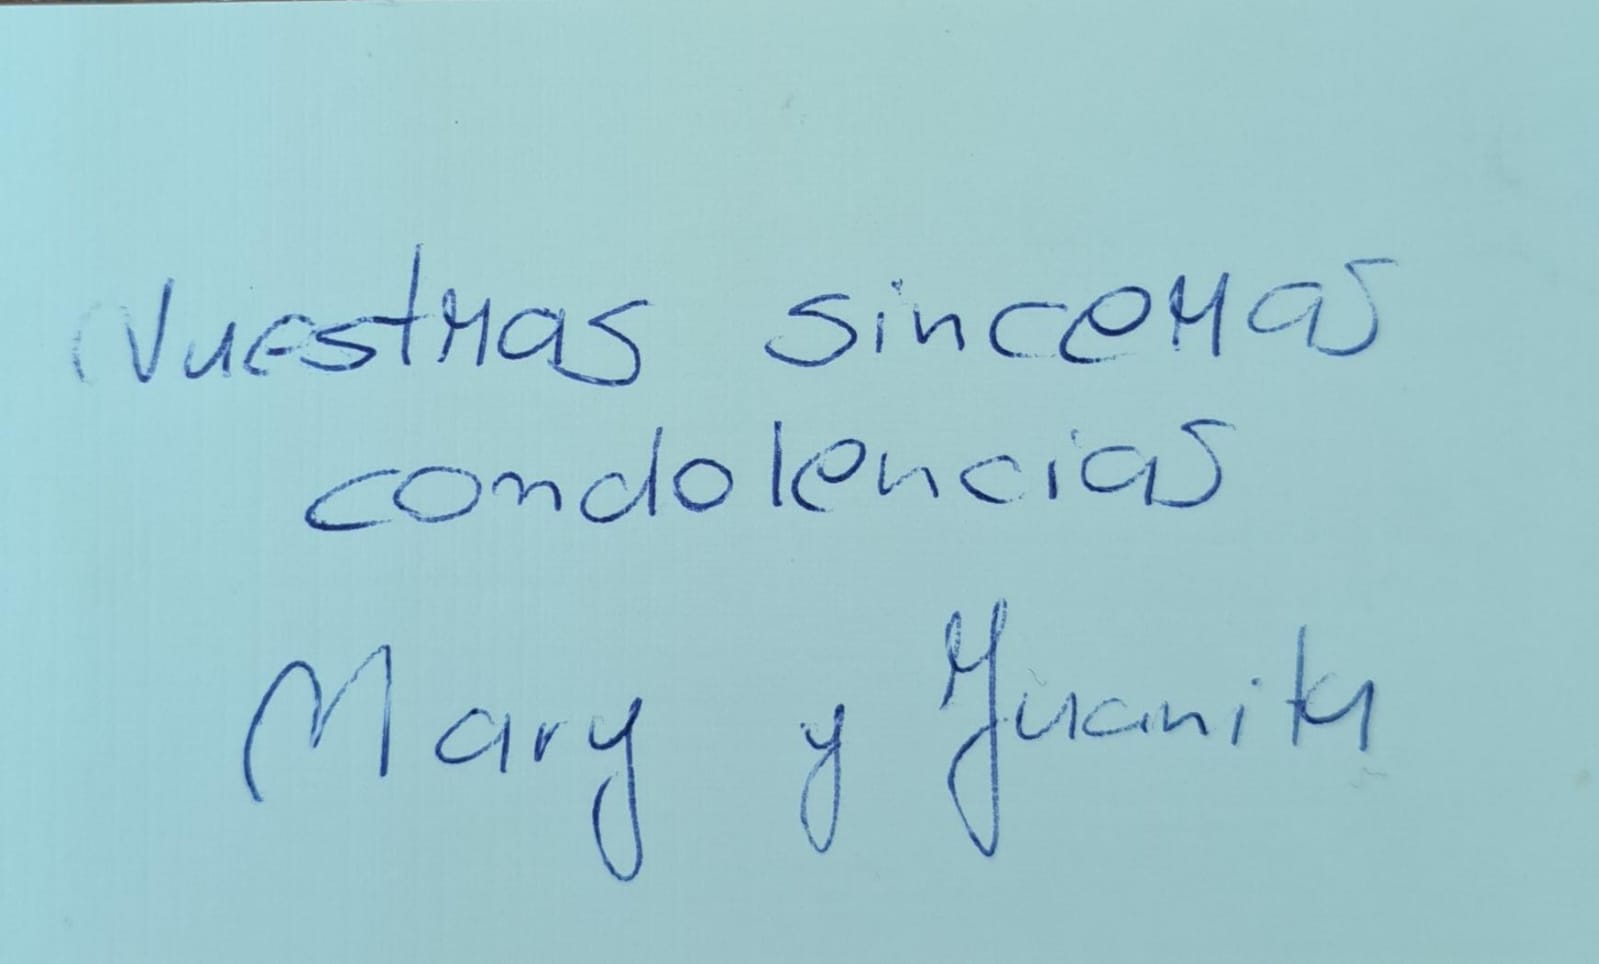 Nuestras sinceras
condolencias
Mary y Juanita